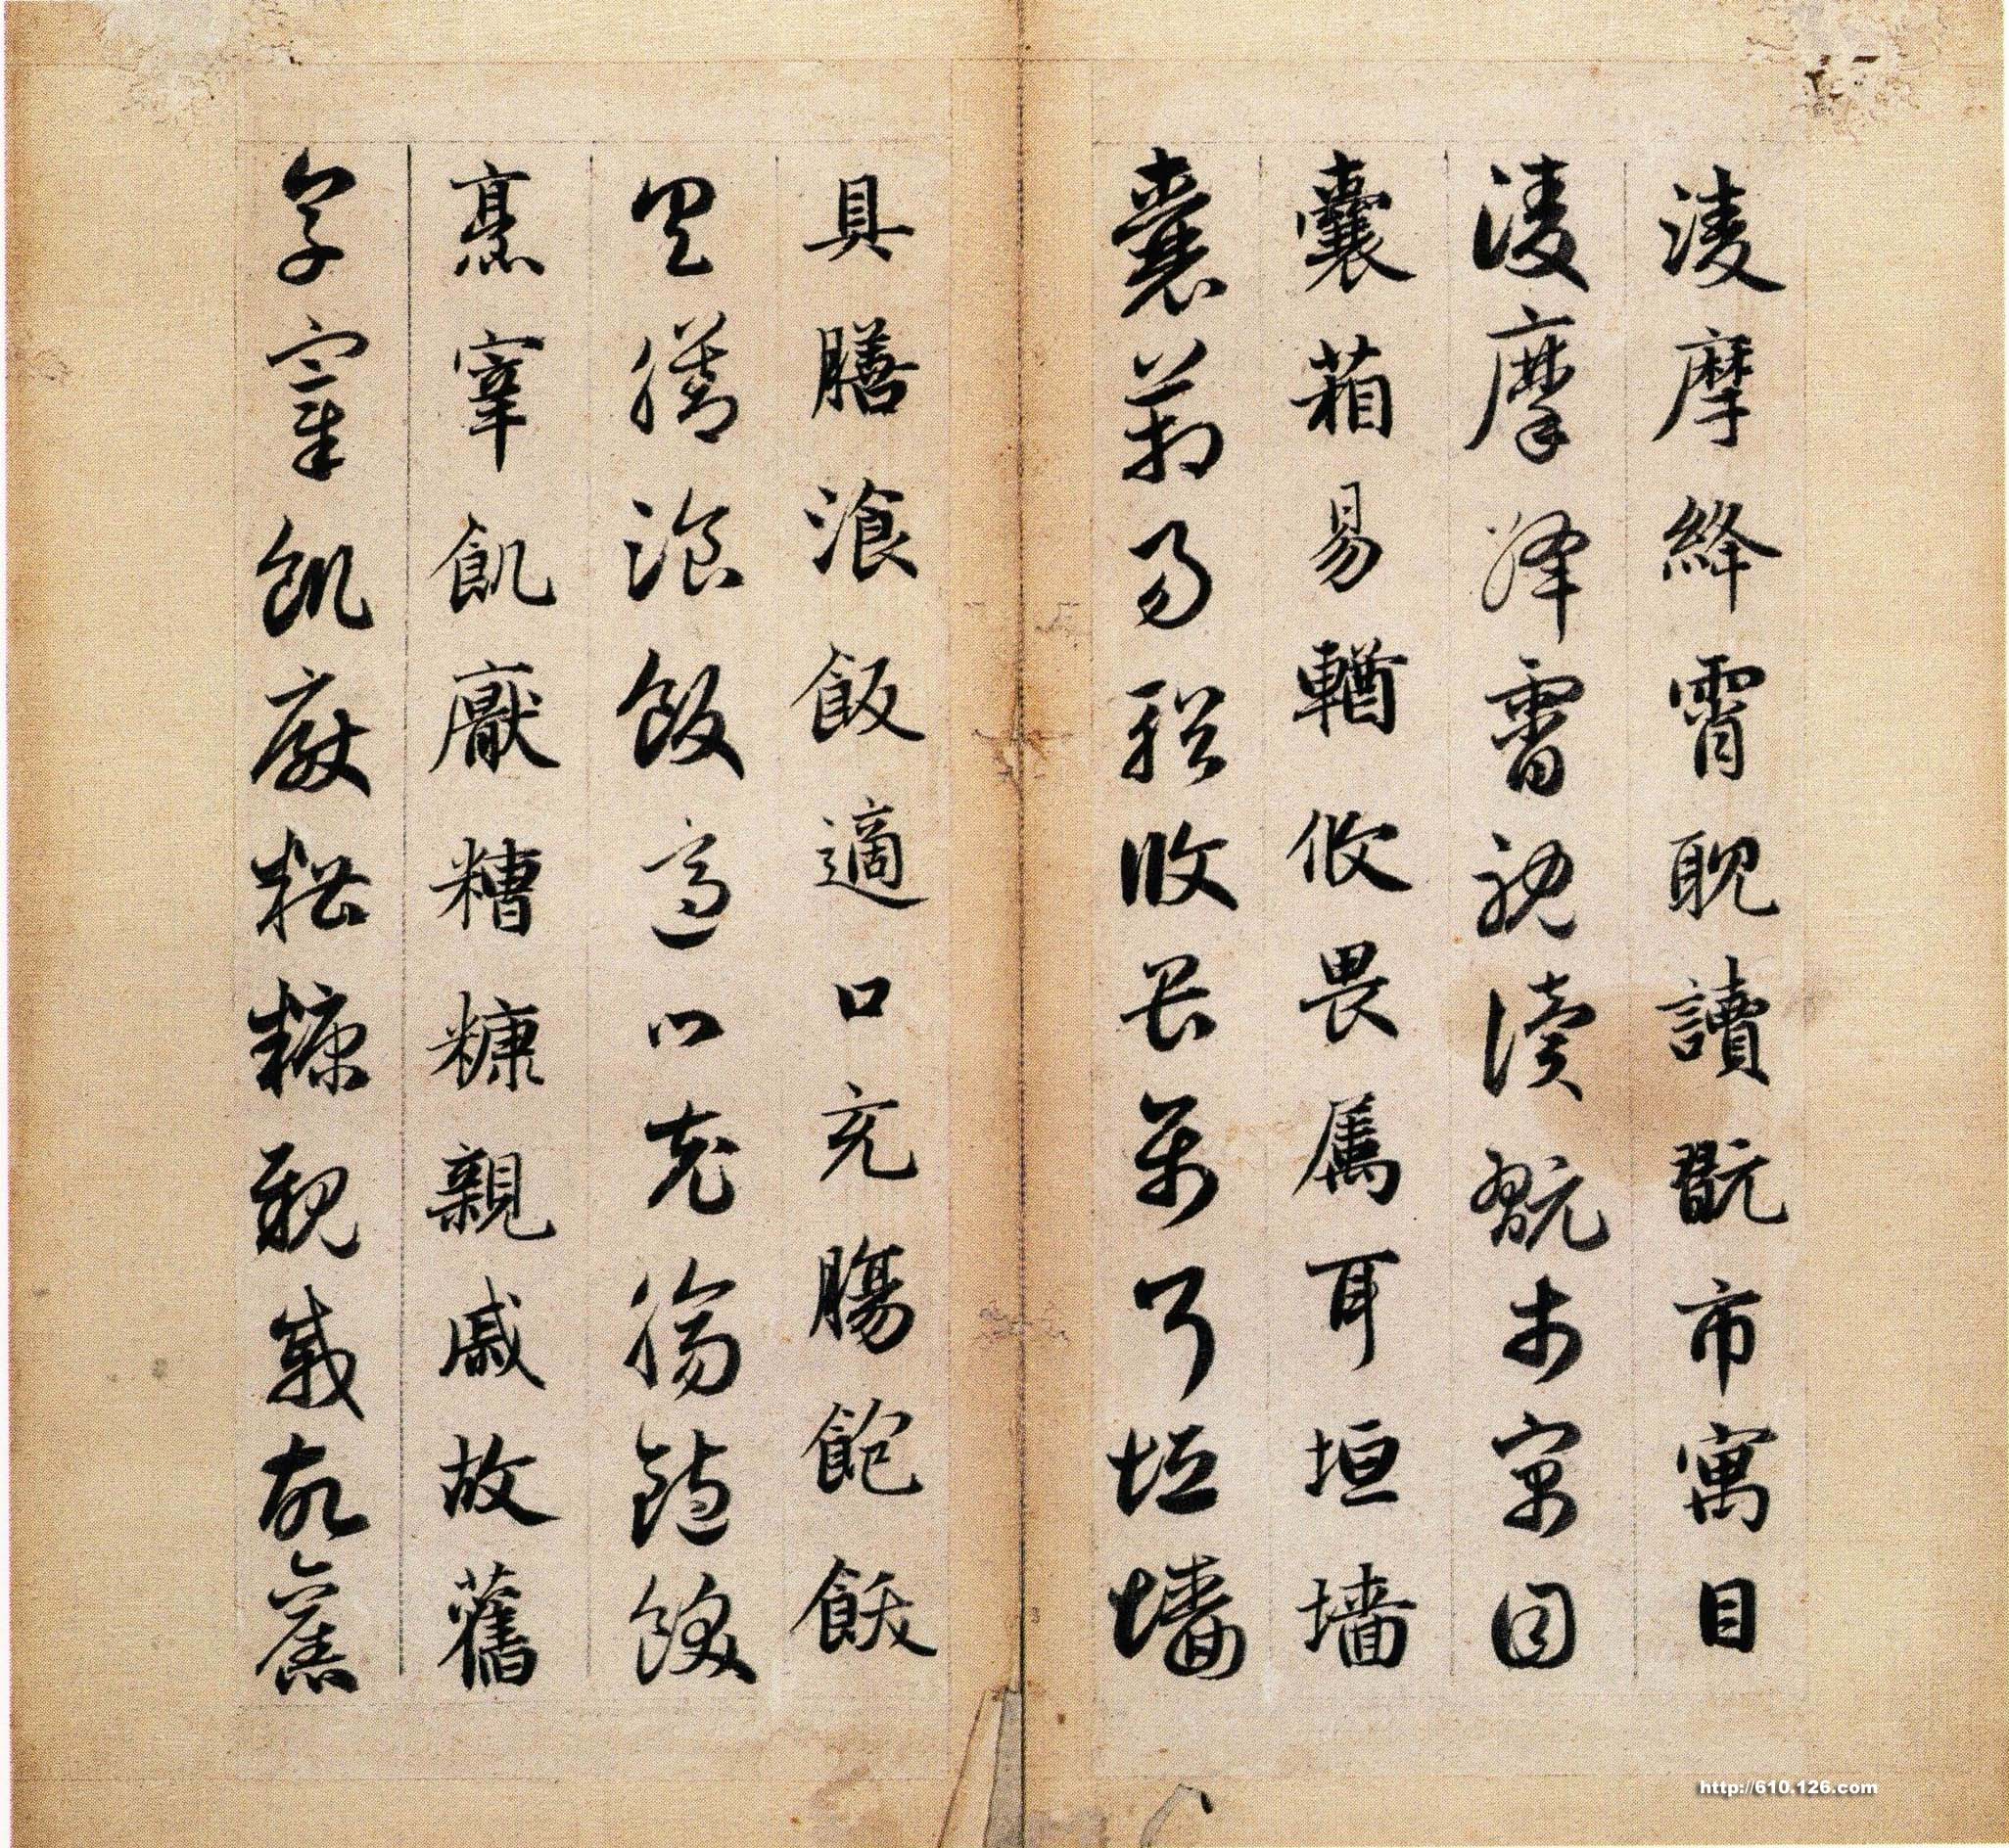 淩摩絳霄耽讀翫市寓目
淩摩絳霄耽讀翫市寓目
囊葙易輶攸畏属耳垣墻
囊葙易輶攸畏属耳垣墻
具膳湌飯適口充腸飽飫
具膳湌飯適口充腸飽飫
烹宰飢厭糟糠親戚故舊
烹宰飢厭糟糠親戚故舊
http://610.126.com